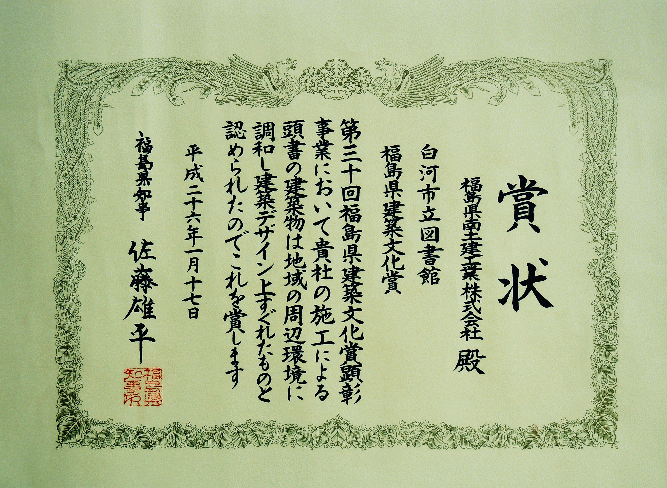 賞状
福島県南土建工業株式会社 殿
白河市立図書館
福島県建築文化賞
第三十回福島県建築文化賞顕彰
事業において貴社の施工による
頭書の建築物は地域の周辺環境に
調和し建築デザイン上すぐれたものと
認められたのでこれを賞します
平成二十六年一月十七日
福島県知事
佐藤雄平